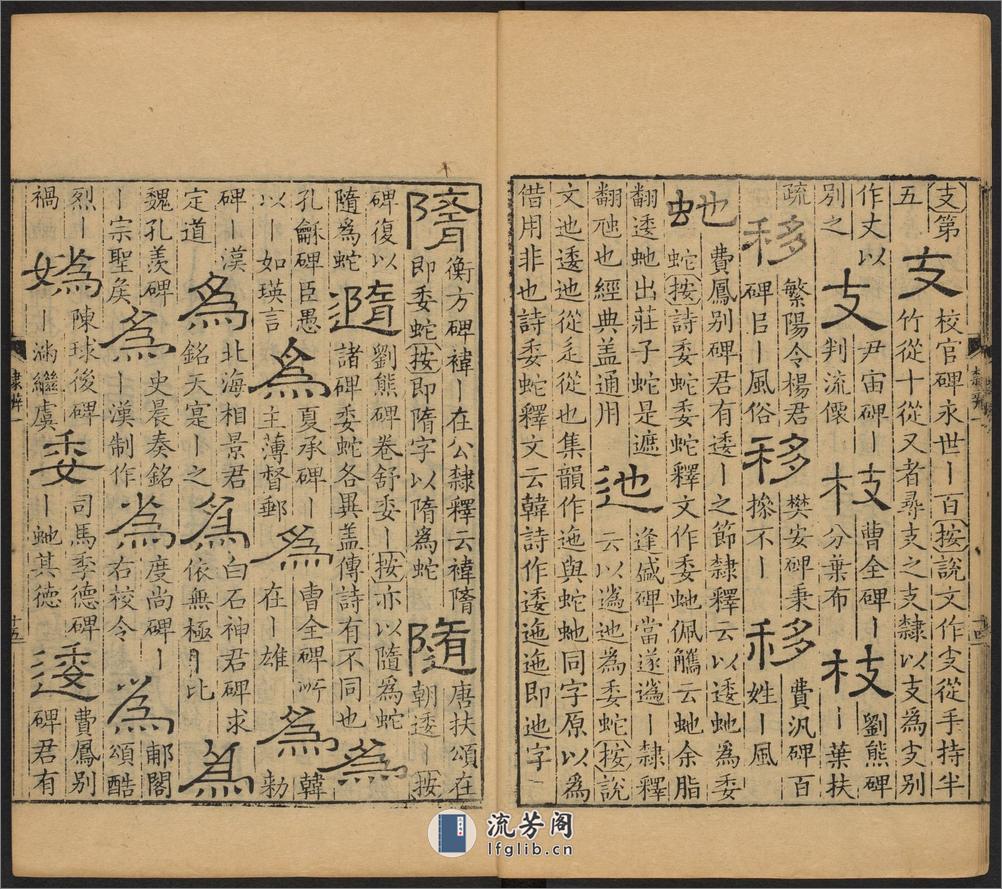 支第五支校官碑永世丨百按說文作支從手持半竹從十從又者尋支之支隸以支為支別
作丈以別之支尹宙碑丨判流懷枝曹全碑丨分葉布枝劉熊碑丨葉扶
疏移繁陽令楊君碑㠯丨風俗移樊安碑秉摻不丨移費汎碑百姓丨風
虵費鳳别碑君有逶丨之節隸釋云以逶虵為委蛇按詩委蛇委蛇釋文作委虵佩觿云虵余脂
翻逶虵出莊子蛇是遮翻虵也經典盖通用迆逢盛碑當遂丨隸釋云以迆為委蛇按說
文迆逶迆從辵從也集韻作迤與蛇虵同字原以為借用非也詩委蛇釋文云韓詩作逶迤迤即迆字
隋衡方碑褘丨在公隸釋云褘隋即委蛇按即隋字以隋為蛇隨唐扶頌在朝逶丨按
碑復以隨為蛇遀劉熊碑卷舒委丨按亦以隨為蛇諸碑委蛇各異盖傳詩有不同也為
孔龢碑臣愚以丨如瑛言為夏承碑丨主薄督郵為曹全碑所在丨雄為韓勅
碑丨漢定道為北海相景君銘天寔丨之為白石神君碑求依無極丨比為
魏孔羨碑丨宗聖矦為史晨奏銘丨漢制作為度尚碑丨右校令為郙閣頌酷
烈禍媯陳球後碑丨滿繼虞委司馬季德碑丨虵其德逶費鳳别碑君有
隸辨一
十四
十五
流芳阁
lfglib.cn